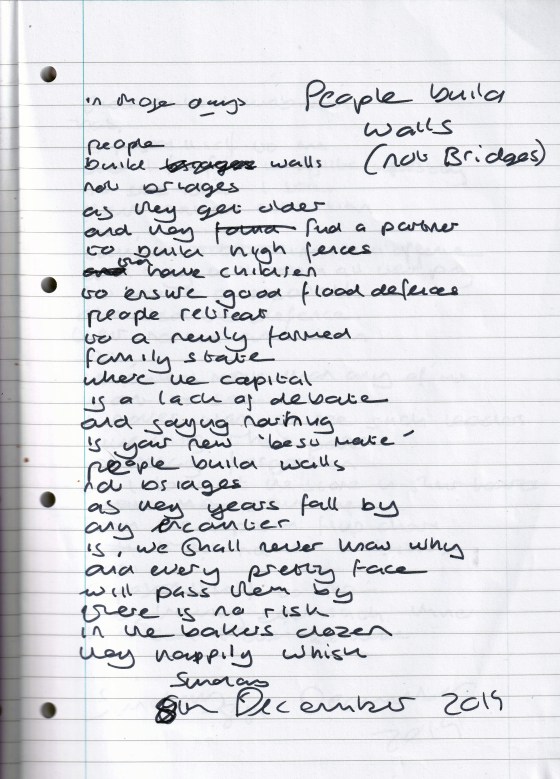 in those days
People build
walls
(not Bridges)
people
build bridges walls
not bridges
as they get older
and they found find a partner
to build high fences
and then have children
to ensure good flood defences
people retreat
to a newly formed
family state
where the capital
is a lack of debate
and saying nothing
is your new 'best mate'
people build walls
not bridges
as they years fall by
any encounter
is, we shall never know why
and every pretty face
will pass them by
there is no risk
in the bakers dozen
they happily whisk
Sunday
8th December 2019